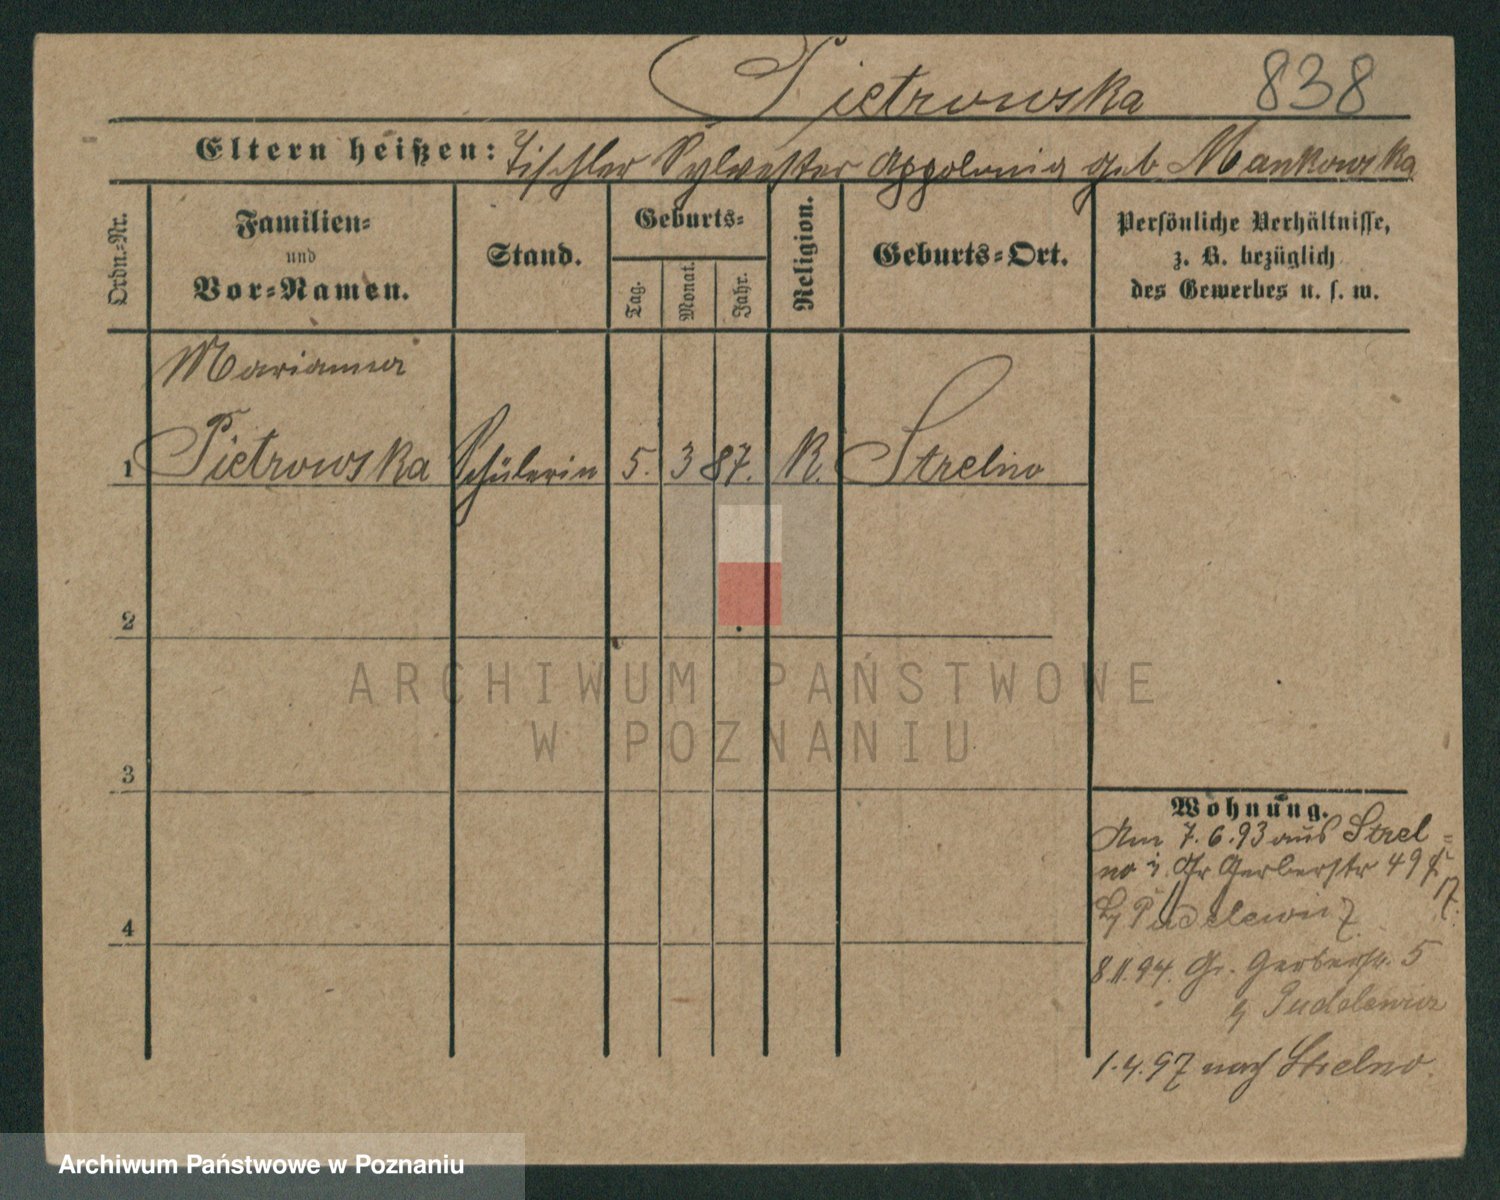 Pietrowska 838
Eltern heißen: Tischler Sylvester Appolonia geb Mankowska
Ordn.-Nr.
Familien-
und
Vor-Namen.
Stand.
Geburts-
Tag.
Monat.
Jahr.
Religion.
Geburts-Ort.
Persönliche Verhältnisse,
z. B. bezüglich
des Gewerbes u. s. w.
Marianna
1 Pietrowska Schülerin 5. 3 87. K. Strelno
2
3
4
Wohnung.
Am 7.6.93 aus Strel-
no i. Gr Gerberstr 49
b/ Pudelewicz
8.11.94. Gr. Gerberstr. 5
b/ Pudelewicz
1.4.97 nach Strelno.
ARCHIWUM PAŃSTWOWE
W POZNANIU
Archiwum Państwowe w Poznaniu